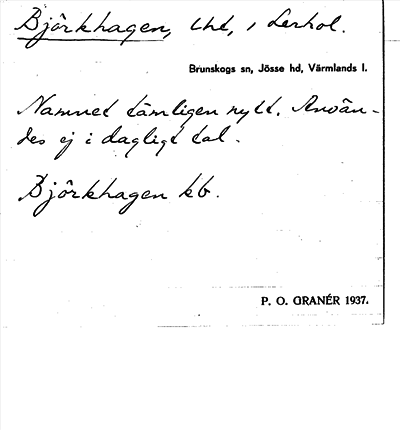 Björkhagen, lht, i Lerhol.
Brunskogs sn, Jösse hd, Värmlands l.
Namnet tämligen nytt. Använ-
des ej i dagligt tal.
Björkhagen kb.
P. O. GRANÉR 1937.